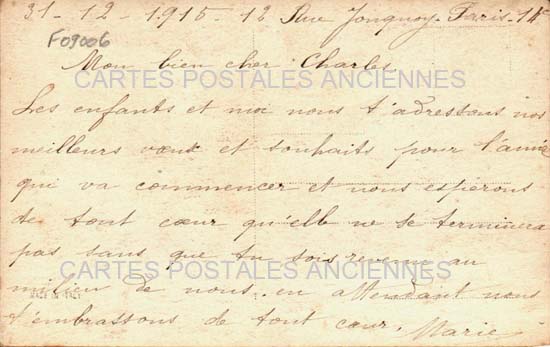 31 - 12 - 1915 - 18 Rue Jonquoy - Paris - 14
F09006
Mon bien cher Charles
CARTES POSTALES ANCIENNES
Les enfants et moi nous t'adressons nos
meilleurs vœux et souhaits pour l'année
qui va commencer et nous espérons
de tout cœur qu'elle ne se terminera
pas sans que tu sois revenu au
CARTES POSTALES ANCIENNES
milieu de nous. en attendant nous
t'embrassons de tout cœur. Marie